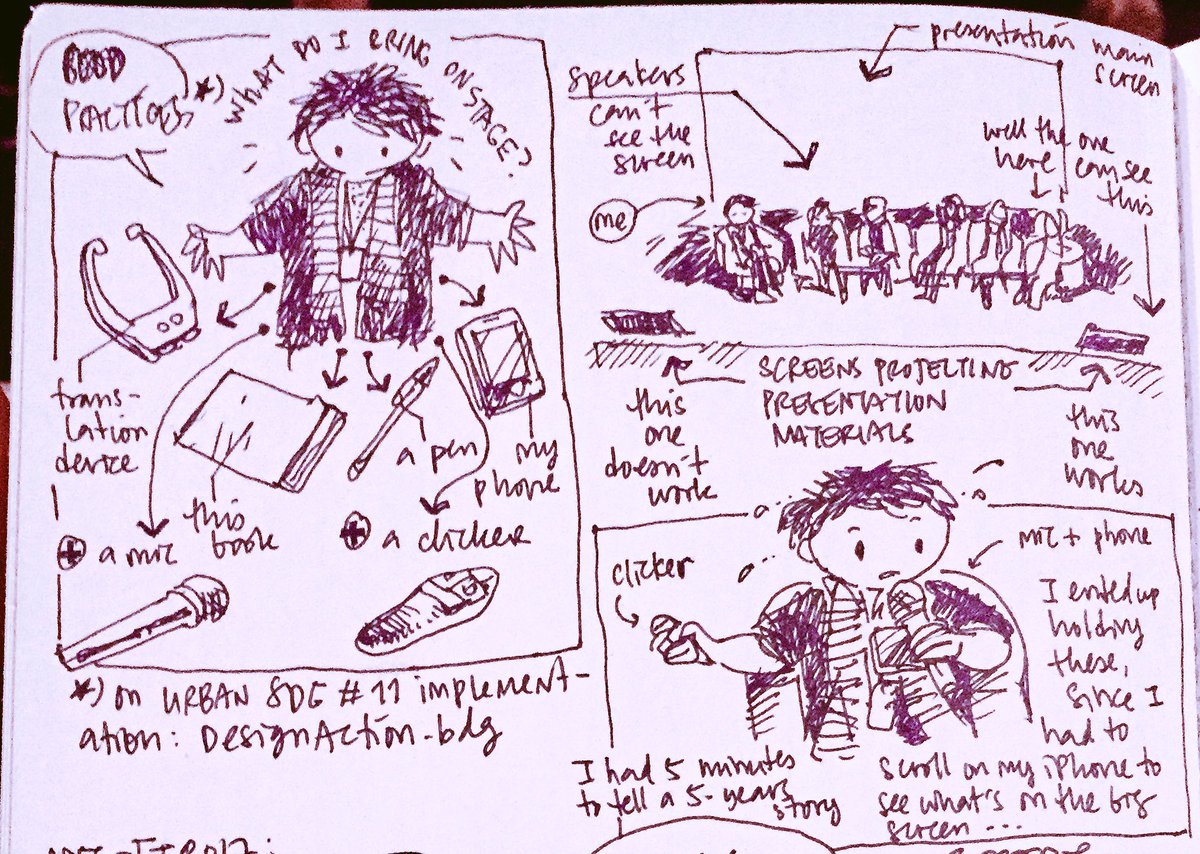 GOOD
PRACTICES *)
WHAT DO I BRING ON STAGE?
trans-
lation
device
this
book
a pen
my
phone
+ a mic
+ a clicker
*) on URBAN SDG #11 implement-
ation: DesignAction.bdg
presentation main
screen
speakers
can't
see the
screen
well the one
here can see
this
me
SCREENS PROJECTING
PRESENTATION
MATERIALS
this
one
doesn't
work
this
one
works
clicker
mic + phone
I ended up
holding
these,
since I
had to
scroll on my iPhone to
see what's on the big
screen ...
I had 5 minutes
to tell a 5-years
story